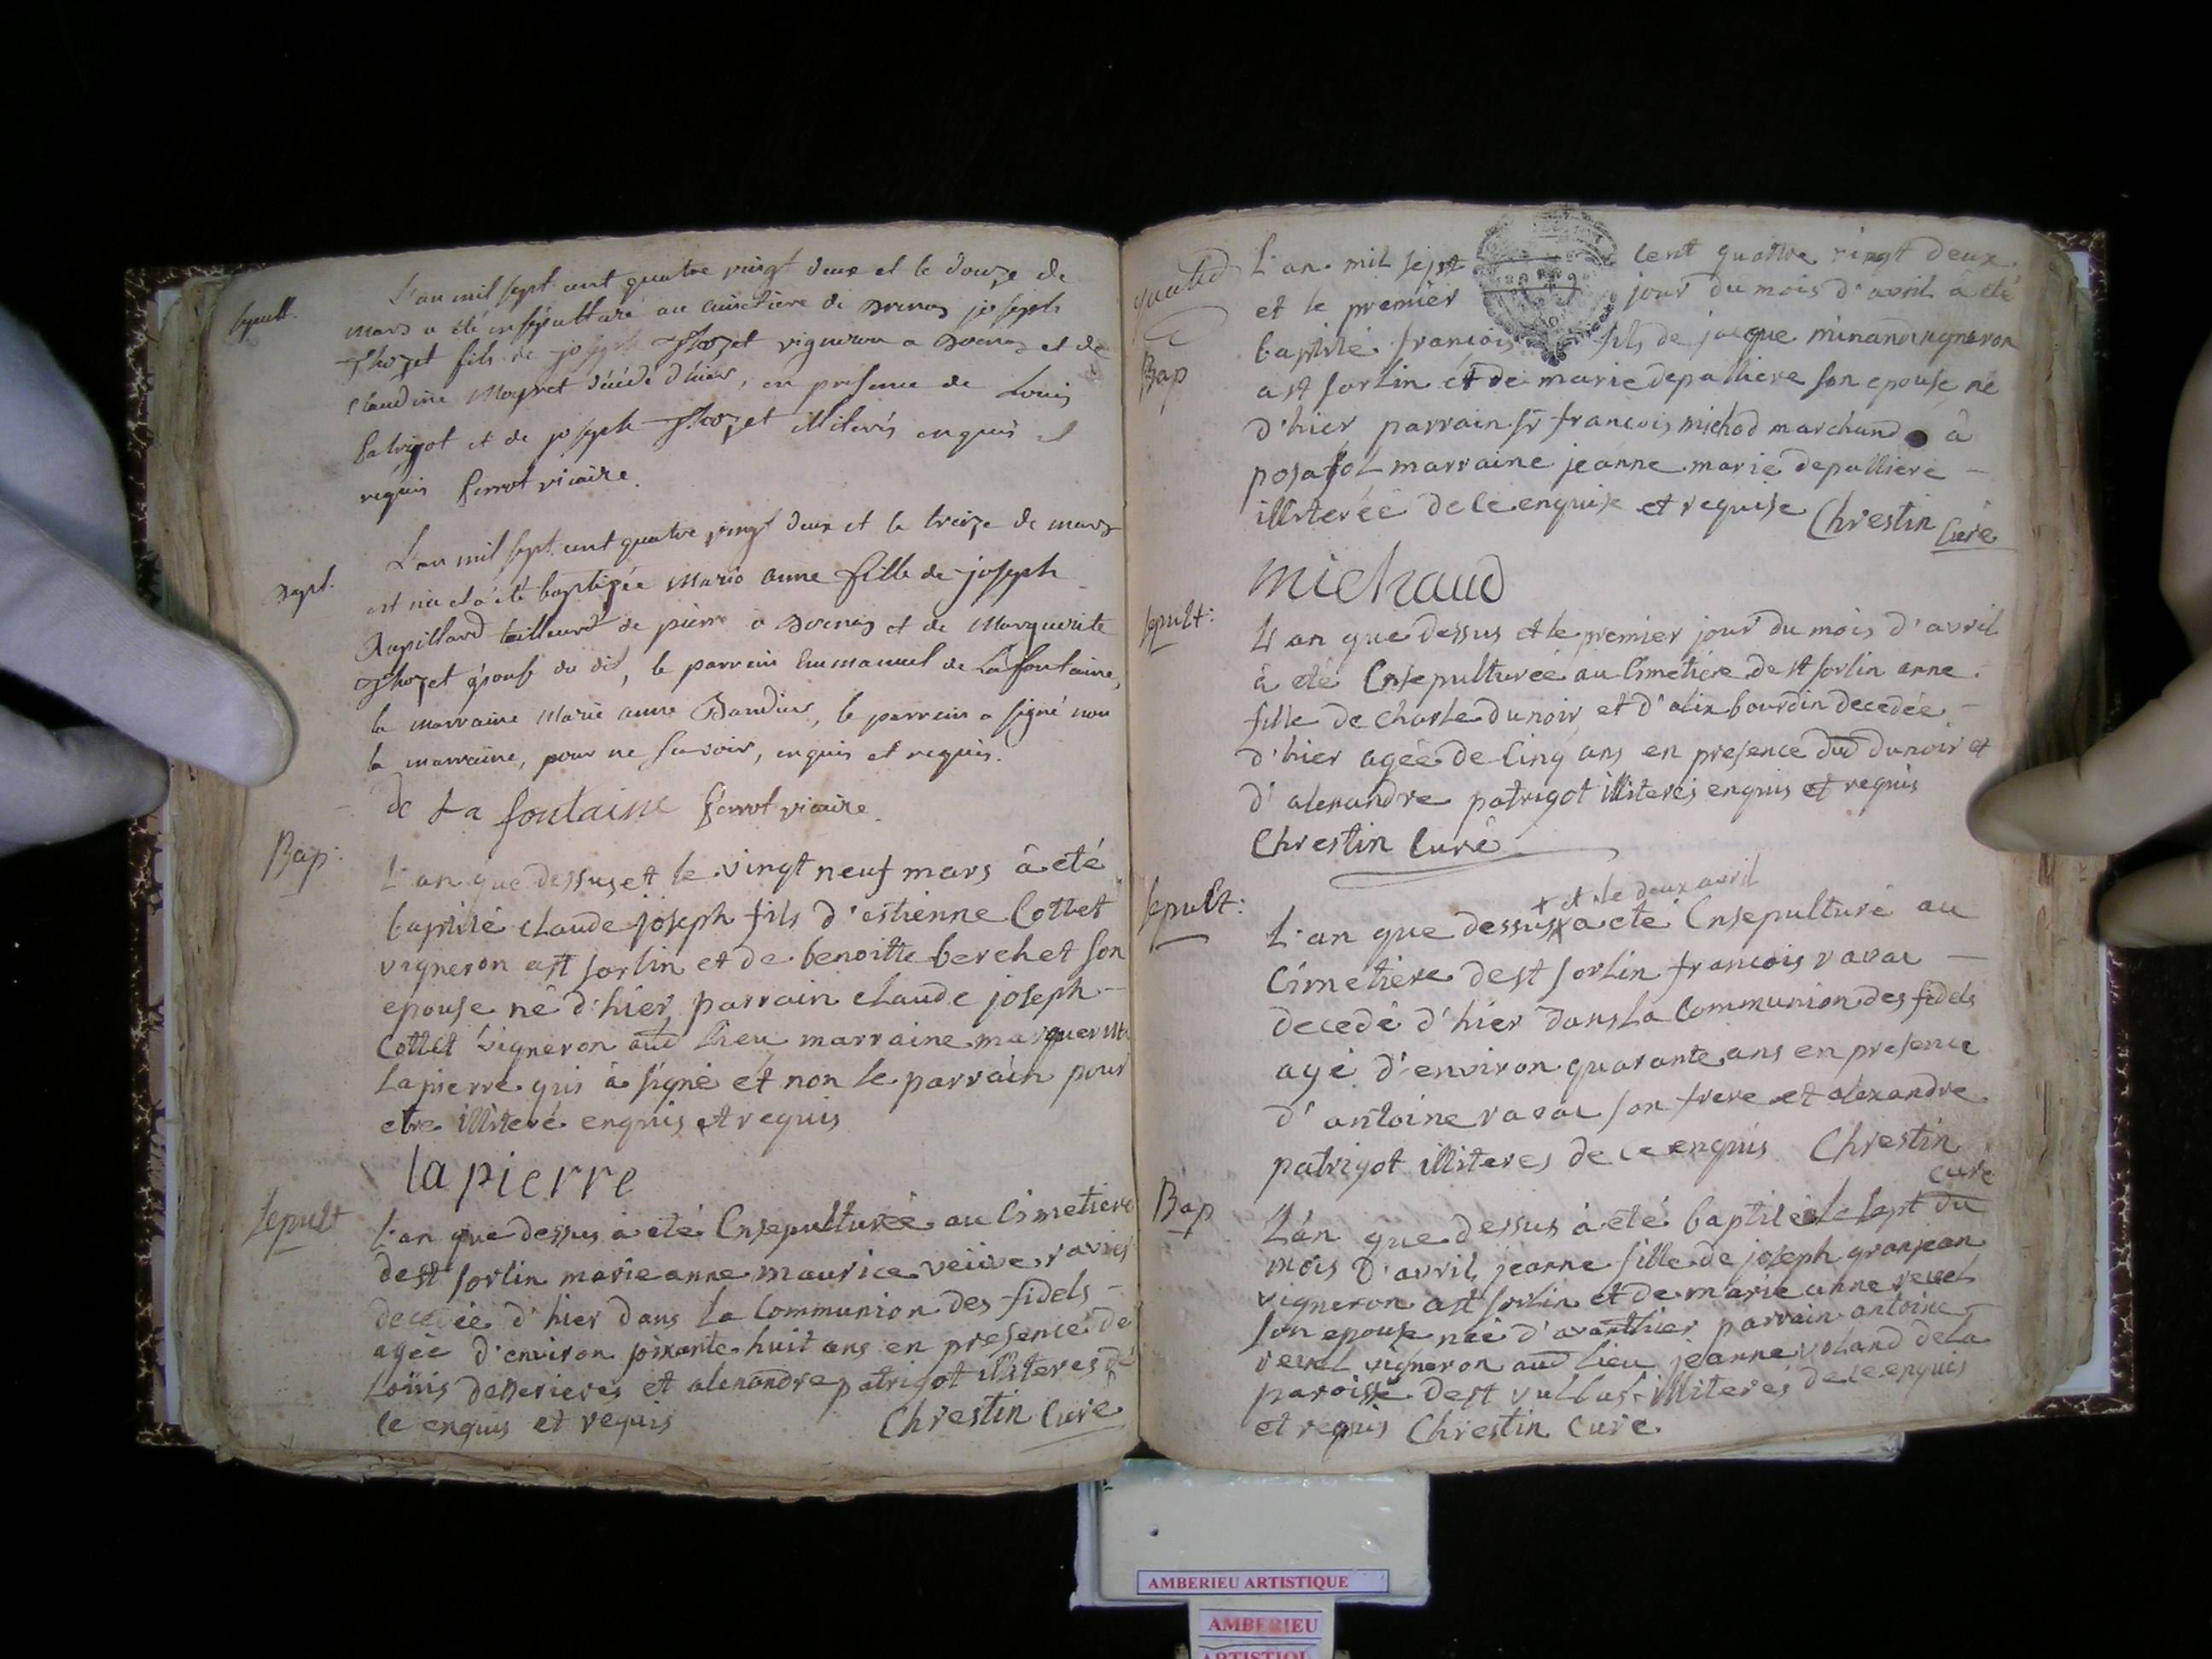 Sepult.
L'an mil sept cent quatre vingt deux et le douze de
mars a été ensépulturé au cimetiere de Soenas joseph
Thozet fils de joseph Thozet vigneron a Soenas et de
Claudine Moyret décédé d'hier, en présence de Louis
Patrigot et de joseph Thozet illiterés enquis et
requis Perrot vicaire.
Bapt.
L'an mil sept cent quatre vingt deux et le treize de mars
est née et a été baptizée Marie anne fille de joseph
Rapillard tailleur de pierre a Soenas et de Marguerite
Thozet épouse du dit, le parrein Emmanuel de Lafontaine,
la marraine Marie anne Baudier, le parrein a signé non
la marraine, pour ne savoir, enquis et requis.
de La fontaine Perrot vicaire.
Bap:
L'an que dessus et le vingt neuf mars à eté
baptisé claude joseph fils d'estienne Cottet
vigneron a st sorlin et de benoitte berchet son
epouse né d'hier parrain claude joseph
Cottet vigneron aud lieu marraine marguerite
Lapierre qui à signé et non le parrain pour
etre illiteré enquis et requis
lapierre
Sepult
L'an que dessus à eté Ensepulturée au Cimetiere
de st sorlin marie anne maurice veüve ravier
decedée d'hier dans la Communion des fidels
agée d'environ soixante huit ans en presence de
Loüis desserieres et alexandre patrigot illiteres de
ce enquis et requis Chrestin Curé
quatre
Bap
L'an mil sept cent quatre vingt deux
et le premier jour du mois d'avril à eté
baptisé francois fils de jacque minand vigneron
a st sorlin et de marie depalliere son epouse né
d'hier parrain sr francois michod marchand à
posafol marraine jeanne marie depalliere
illiterée de ce enquise et requise Chrestin
Curé
michaud
Sepult:
L'an que dessus et le premier jour du mois d'avril
à eté Ensepulturée au Cimetiere de st sorlin anne
fille de charle dunoir et d'alix bourdin decedée
d'hier agée de Cinq ans en presence dud dunoir et
d'alexandre patrigot illiterés enquis et requis
Chrestin Curé
Sepult:
+ et le deux avril
L'an que dessus + a eté Ensepulturé au
Cimetiere de st sorlin francois ravac
decedé d'hier dans la Communion des fidels
agé d'environ quarante ans en presence
d'antoine ravac son frere et alexandre
patrigot illiteres de ce enquis Chrestin
curé
Bap
L'an que dessus à eté baptisée le sept du
mois d'avril jeanne fille de joseph granjean
vigneron a st sorlin et de marie anne revel
son epouse née d'avanthier parrain antoine
revel vigneron aud lieu jeanne voland de la
paroisse de st vullas illiterés de ce enquis
et requis Chrestin Curé
AMBERIEU ARTISTIQUE
AMBERIEU
ARTISTIQUE